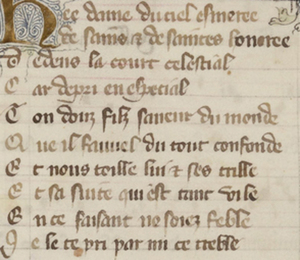 Hee dame du ciel esmeree
De sains & de saintes honoree
Dedens la court celestial
Car depri en especial
Ton douz filz sauueur du monde
Que il fauuel du tout confonde
Et nous toille lui & ses trille
Et sa suite qui est tant vile
En ce faisant ne soiez feble
Je le te pri par mi ce treble